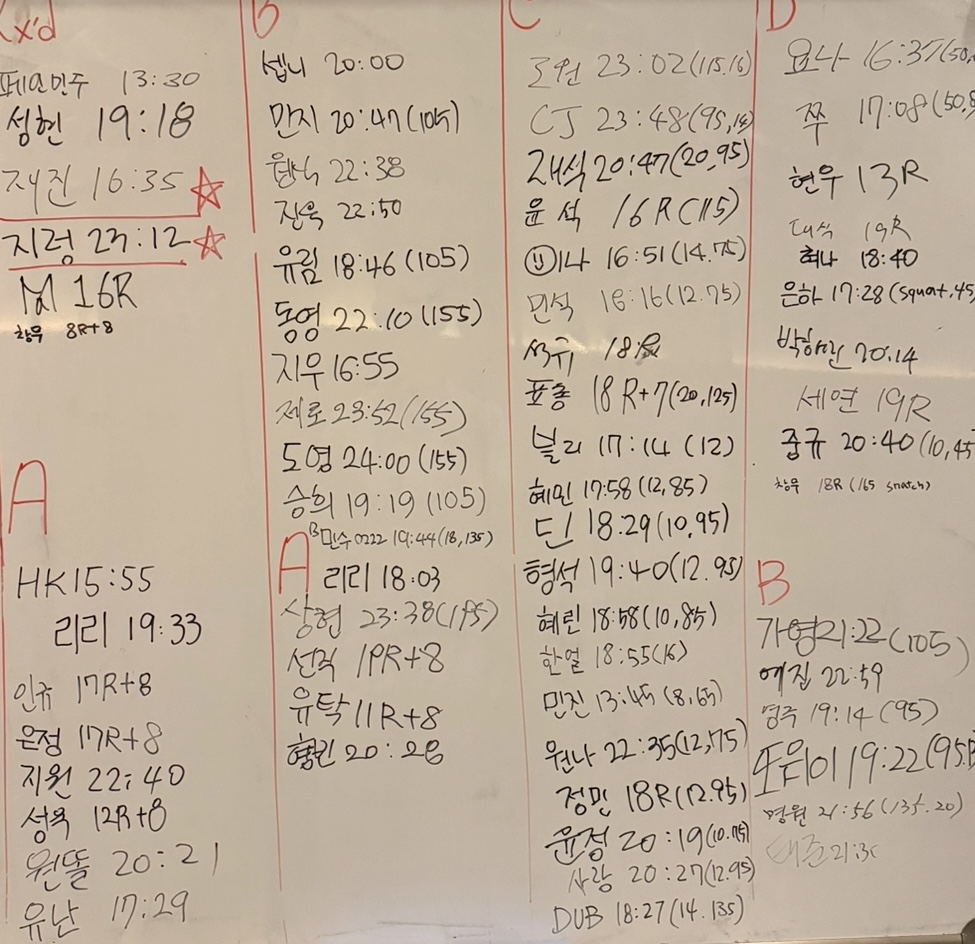 Rx'd
페인민주 13:30
성현 19:18
재진 16:35 ☆
지령 23:12 ☆
M 16R
창우 8R+8
A
HK 15:55
리리 19:33
인규 17R+8
은정 17R+8
지원 22:40
성욱 12R+8
원똘 20:21
유난 17:29
B
셉니 20:00
만지 20:47 (105)
22:38
진욱 22:50
유림 18:46 (105)
동영 22:10 (155)
지우 16:55
제로 23:52 (155)
도영 24:00 (155)
승희 19:19 (105)
B민수0222 19:44 (18,135)
A
리리 18:03
상현 23:38 (195)
선직 19R+8
유탁 11R+8
형린 20:28
C
도원 23:02 (115.16)
CJ 23:48 (95,14)
재석 20:47 (20,95)
윤석 16R (115)
나 16:51 (14.75)
민석 16:16 (12.75)
석규 18R
표홍 18R+7 (20,125)
닐리 17:14 (12)
혜민 17:58 (12,85)
딘 18.29 (10,95)
형석 19:40 (12.95)
혜린 18:58 (10,85)
한얼 18:55 (16)
민진 13:45 (8,65)
원나 22:35 (12,75)
정민 18R (12.95)
윤정 20:19 (10.75)
사랑 20:27 (12.95)
DUB 18:27 (14.135)
D
요나 16:37 (50,
쭈 17:08 (50,8
현우 13R
대식 19R
혜나 18:40
은하 17:28 (squat,45
박하린 20:14
세연 19R
중규 20:40 (10,45
창우 18R (165 snatch)
B
가형 21:22 (105)
예집 22:59
영주 19:14 (95)
또위이 19:22 (95,
명원 21:56 (135.20)
태준 21:30